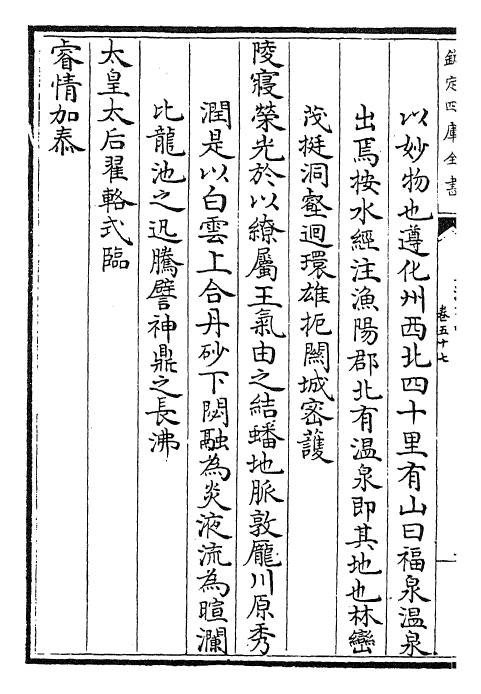 欽定四庫全書
卷五十七
以妙物也遵化州西北四十里有山曰福泉温泉
出焉按水經注漁陽郡北有温泉即其地也林巒
茂挺洞壑迴環雄扼闗城宻䕶
陵寢榮光於以繚屬王氣由之結蟠地脈敦龎川原秀
潤是以白雲上合丹砂下閟融為炎液流為暄瀾
比龍池之迅騰譬神鼎之長沸
太皇太后翟輅式臨
睿情加泰